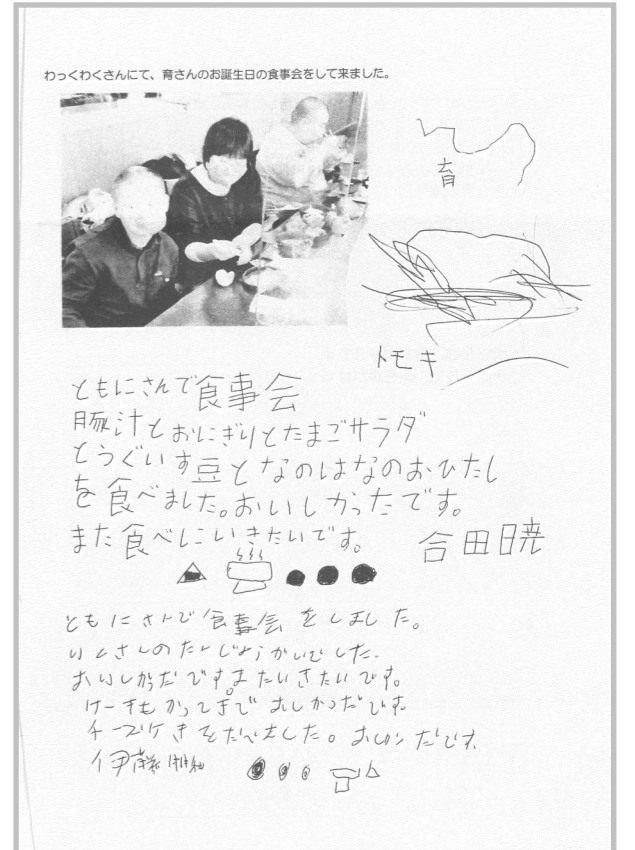 わっくわくさんにて、育さんのお誕生日の食事会をして来ました。
育
トモキ
ともにさんで食事会
豚汁とおにぎりとたまごサラダ
とうぐいす豆となのはなのおひたし
を食べました。おいしかったです。
また食べしにいきたいです。
合田暁
ともにさんで食事会をしました。
いくさしのたんじょうかいでした。
おいしかっだです。またいきたいです。
ケーキもかってきて おしかっだです。
チーズケきをたべました。おしかっだです。
伊藤